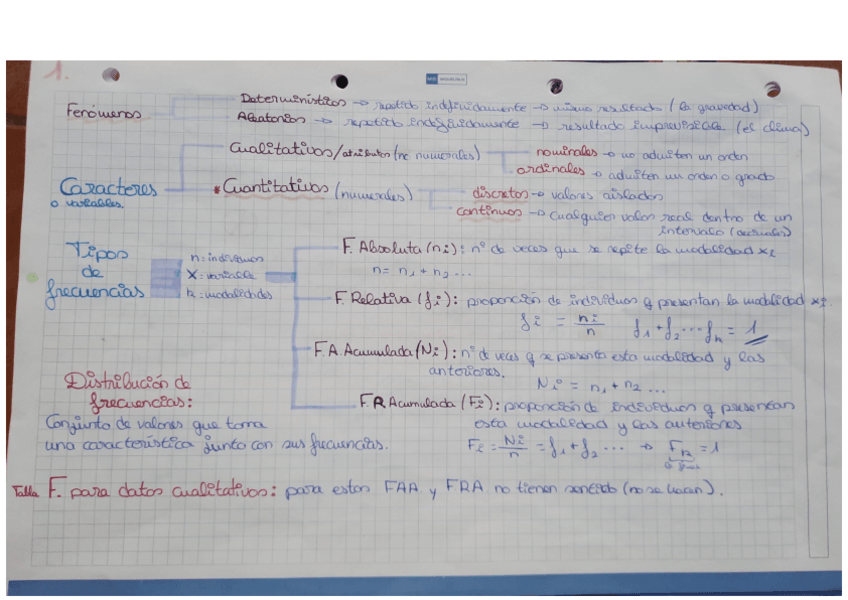 1.
Fenómenos
Determinísticos → repetido indefinidamente → mismo resultado (la gravedad)
Aleatorios → repetido indefinidamente → resultado imprevisible (el clima)
Caracteres
o variables.
Cualitativos/atributos (no numerales)
nominales → no admiten un orden
ordinales → admiten un orden o grado
• Cuantitativos (numerales)
discretos → valores aislados
continuos → cualquier valor real dentro de un
intervalo (decimales)
Tipos
de
frecuencias
n: individuos
X: variable
k: modalidades
F. Absoluta (ni): nº de veces que se repite la modalidad xi
n = n1 + n2 ...
F. Relativa (fi): proporción de individuos q presentan la modalidad xi.
fi = ni/n f1 + f2 ... fk = 1
F.A. Acumulada (Ni): nº de veces q se presenta esta modalidad y las
anteriores.
Ni = n1 + n2 ...
F R Acumulada (Fi): proporción de individuos q presentan
esta modalidad y las anteriores
Fi = Ni/n = f1 + f2 ... → Fk = 1
Distribución de
frecuencias:
Conjunto de valores que toma
una característica junto con sus frecuencias.
Tabla F. para datos cualitativos: para estos FAA y FRA no tienen sentido (no se hacen).